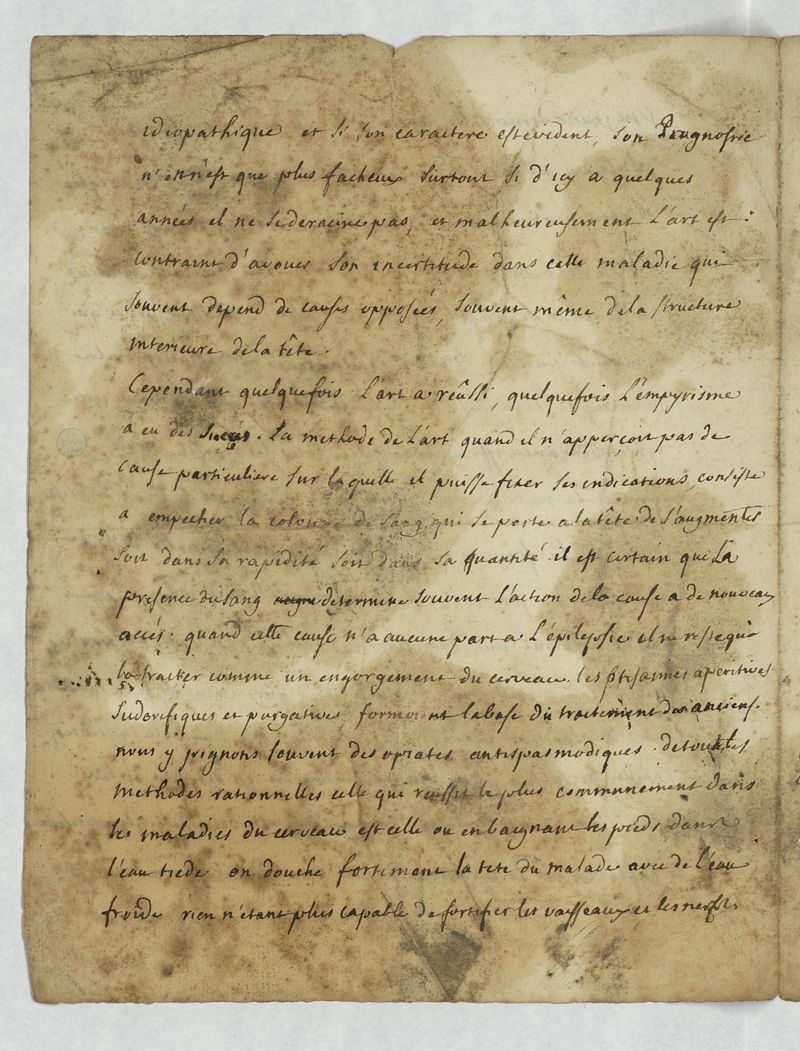 idiopathique et si son caractere est evident, son Prognostic
n'en n'est que plus facheux surtout si d'icy a quelques
années il ne se deracine pas, et malheureusement l'art est
contraint d'avouer son incertitude dans cette maladie qui
souvent depend de causes opposées, souvent même de la structure
interieure de la tête.
Cependant quelquefois l'art a réussi, quelquefois l'empyrisme
a eu des succés. la methode de l'art quand il n'apperçoit pas de
cause particuliere sur laquelle il puisse fixer ses indications, consiste
a empecher la colonne de sang qui se porte a la tête de s'augmenter
soit dans sa rapidité soit dans sa quantité. il est certain que la
presence du sang determine souvent l'action de la cause a de nouveaux
accés. quand cette cause n'a aucune part a l'épilepsie il ne reste qu'a
la traiter comme un engorgement du cerveau. les ptisannes aperitives
sudorifiques et purgatives, formoient la base du traitement des anciens.
nous y joignons souvent des opiates antispasmodiques. de toutes les
methodes rationnelles celle qui reussit le plus communement dans
les maladies du cerveau est celle ou en baignant les pieds dans
l'eau tiede on douche fortement la tete du malade avec de l'eau
froide rien n'étant plus capable de fortifier les vaisseaux et les nerfs.